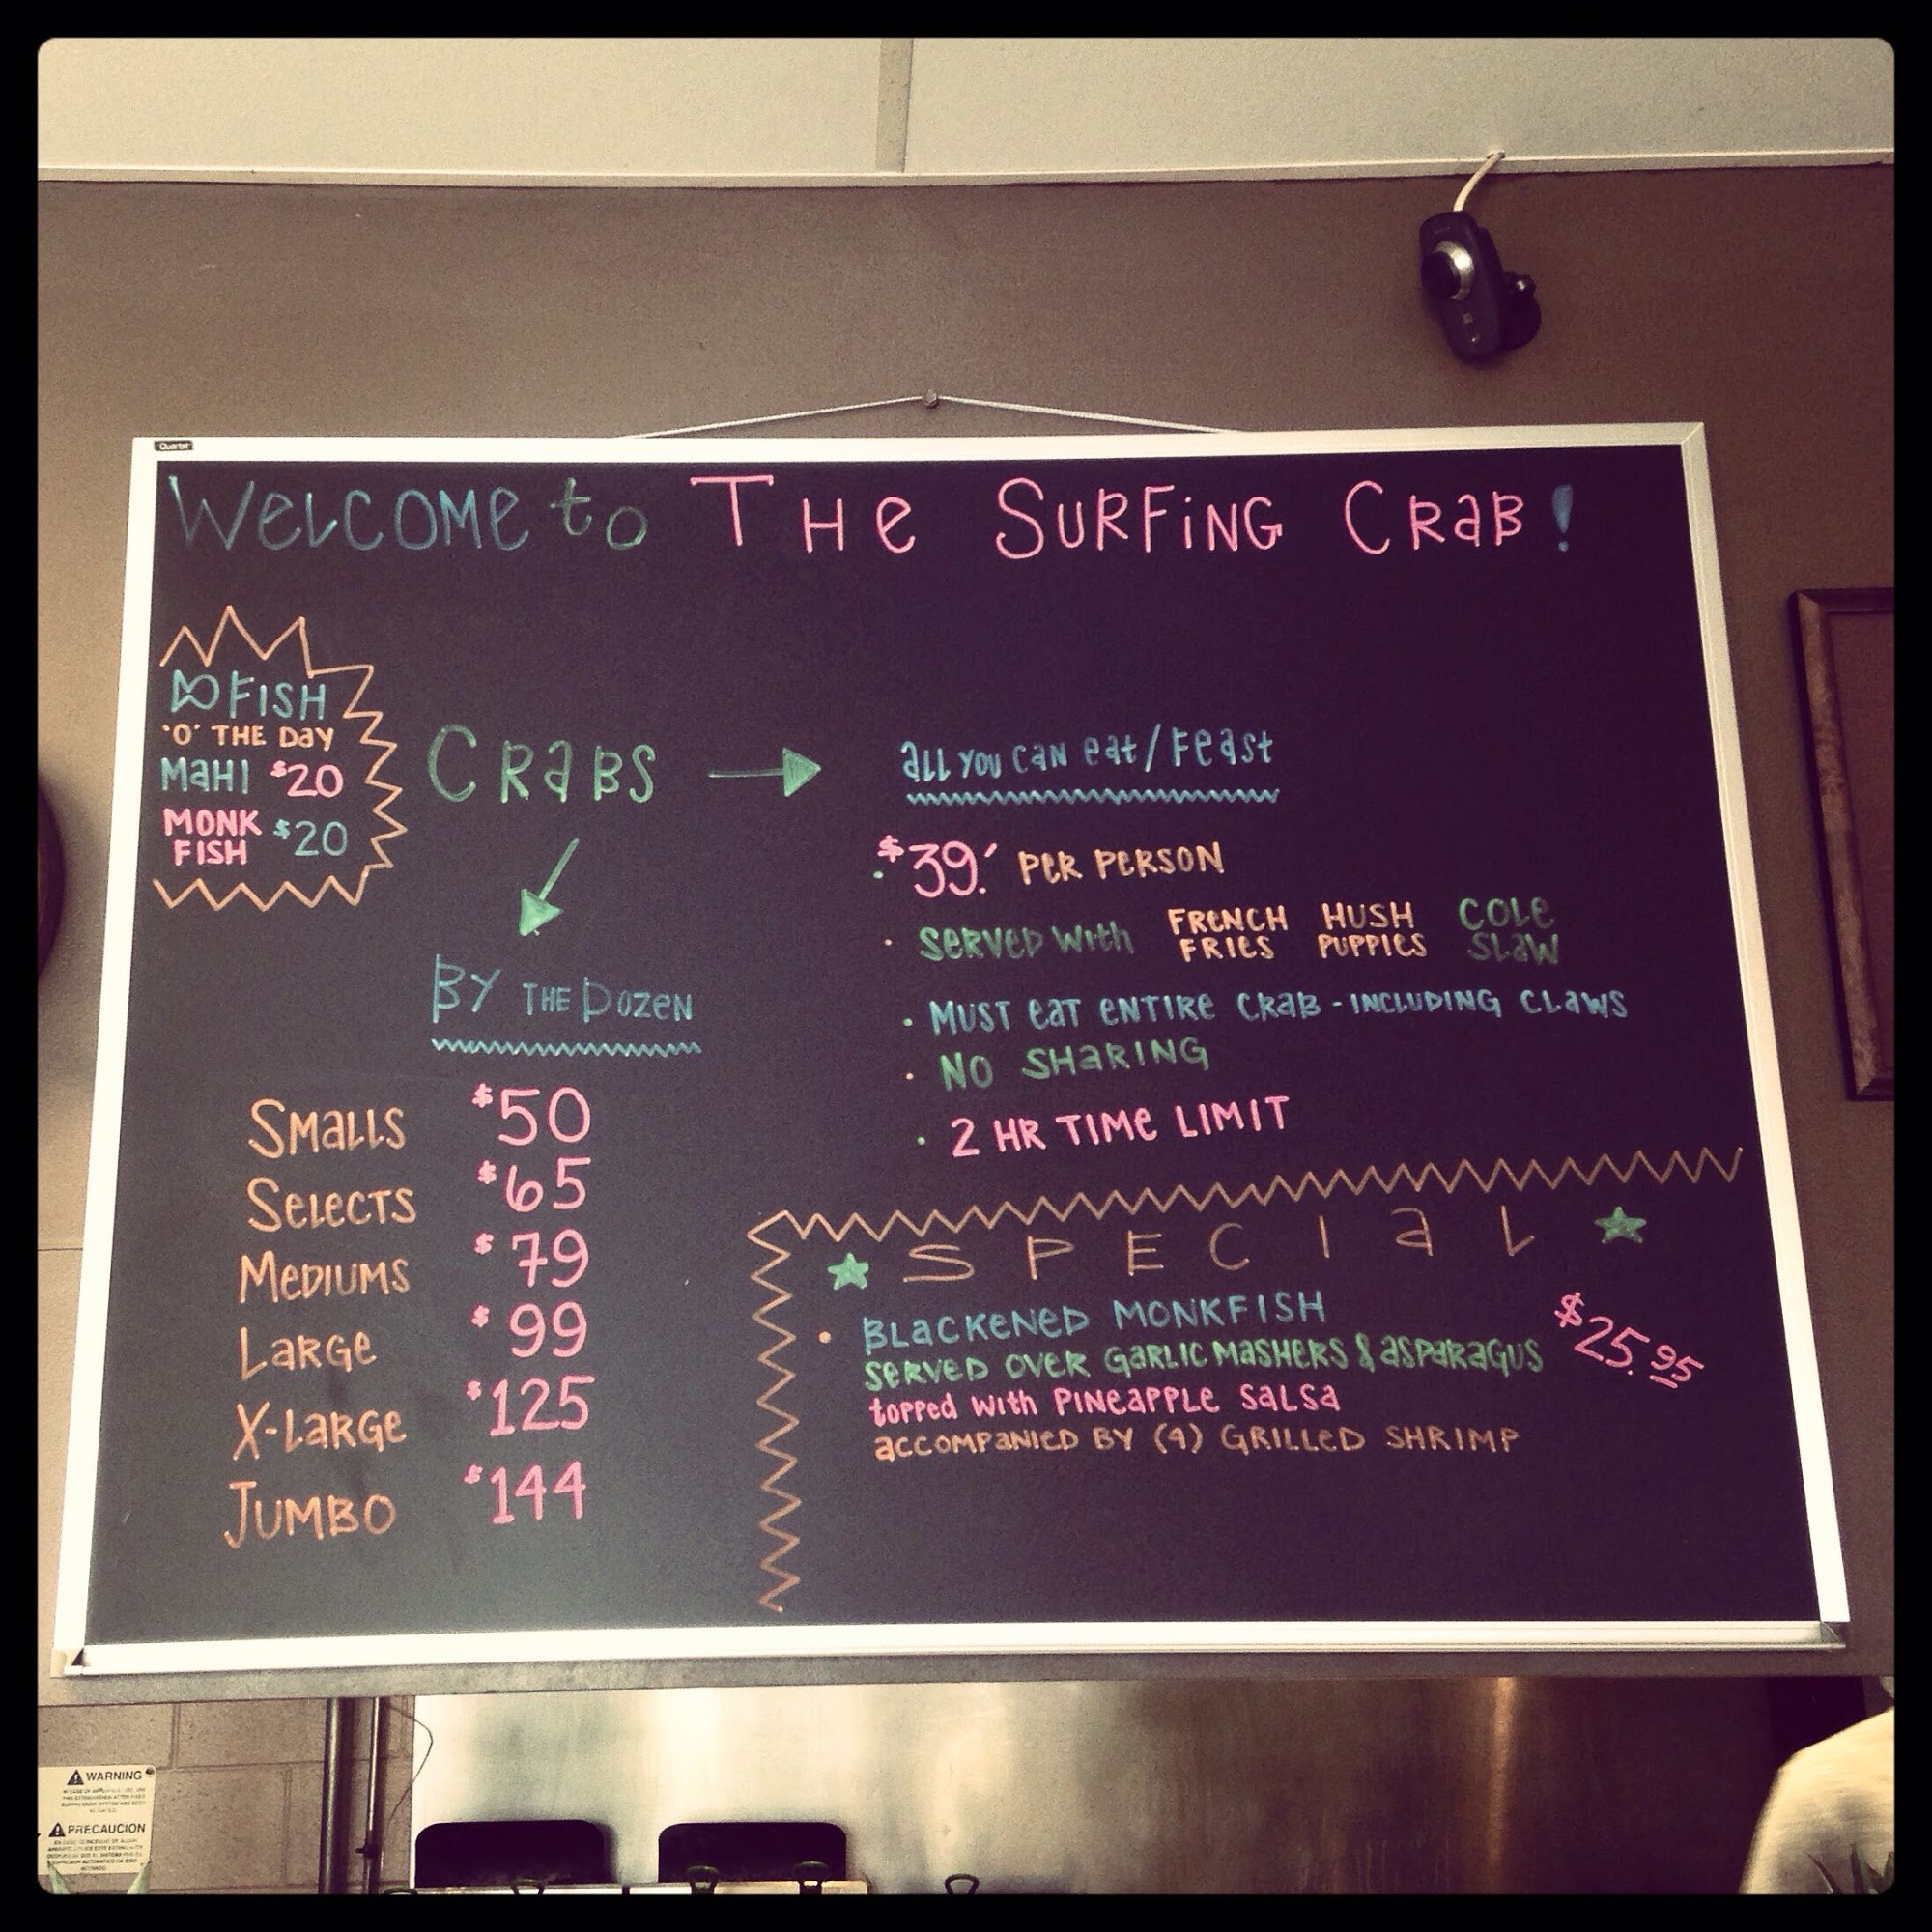 Quartet
WELCOME to THE SURFING CRAB!
FISH
'O' THE DAY
MAHI $20
MONK FISH $20
CRABS
BY THE DOZEN
SMALLS $50
SELECTS $65
MEDIUMS $79
LARGE $99
X-LARGE $125
JUMBO $144
ALL YOU CAN EAT/FEAST
$39.' PER PERSON
• SERVED WITH FRENCH FRIES HUSH PUPPIES COLE SLAW
• MUST EAT ENTIRE CRAB - INCLUDING CLAWS
• NO SHARING
• 2 HR TIME LIMIT
SPECIAL
• BLACKENED MONKFISH
SERVED OVER GARLIC MASHERS & ASPARAGUS $25.95
topped with PINEAPPLE SALSA
ACCOMPANIED BY (4) GRILLED SHRIMP
WARNING
PRECAUCION